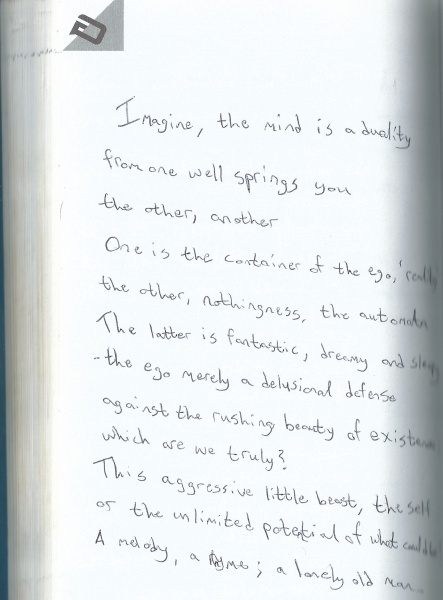 Imagine, the mind is a duality
from one well springs you
the other, another
One is the container of the ego,
the other, nothingness, the automatn
The latter is fantastic, dreamy and
- the ego merely a delusional defense
against the rushing beauty of
which are we truly?
This aggressive little beast, the self
or the unlimited potential of what could be
A melody, a rhyme; a lonely old man